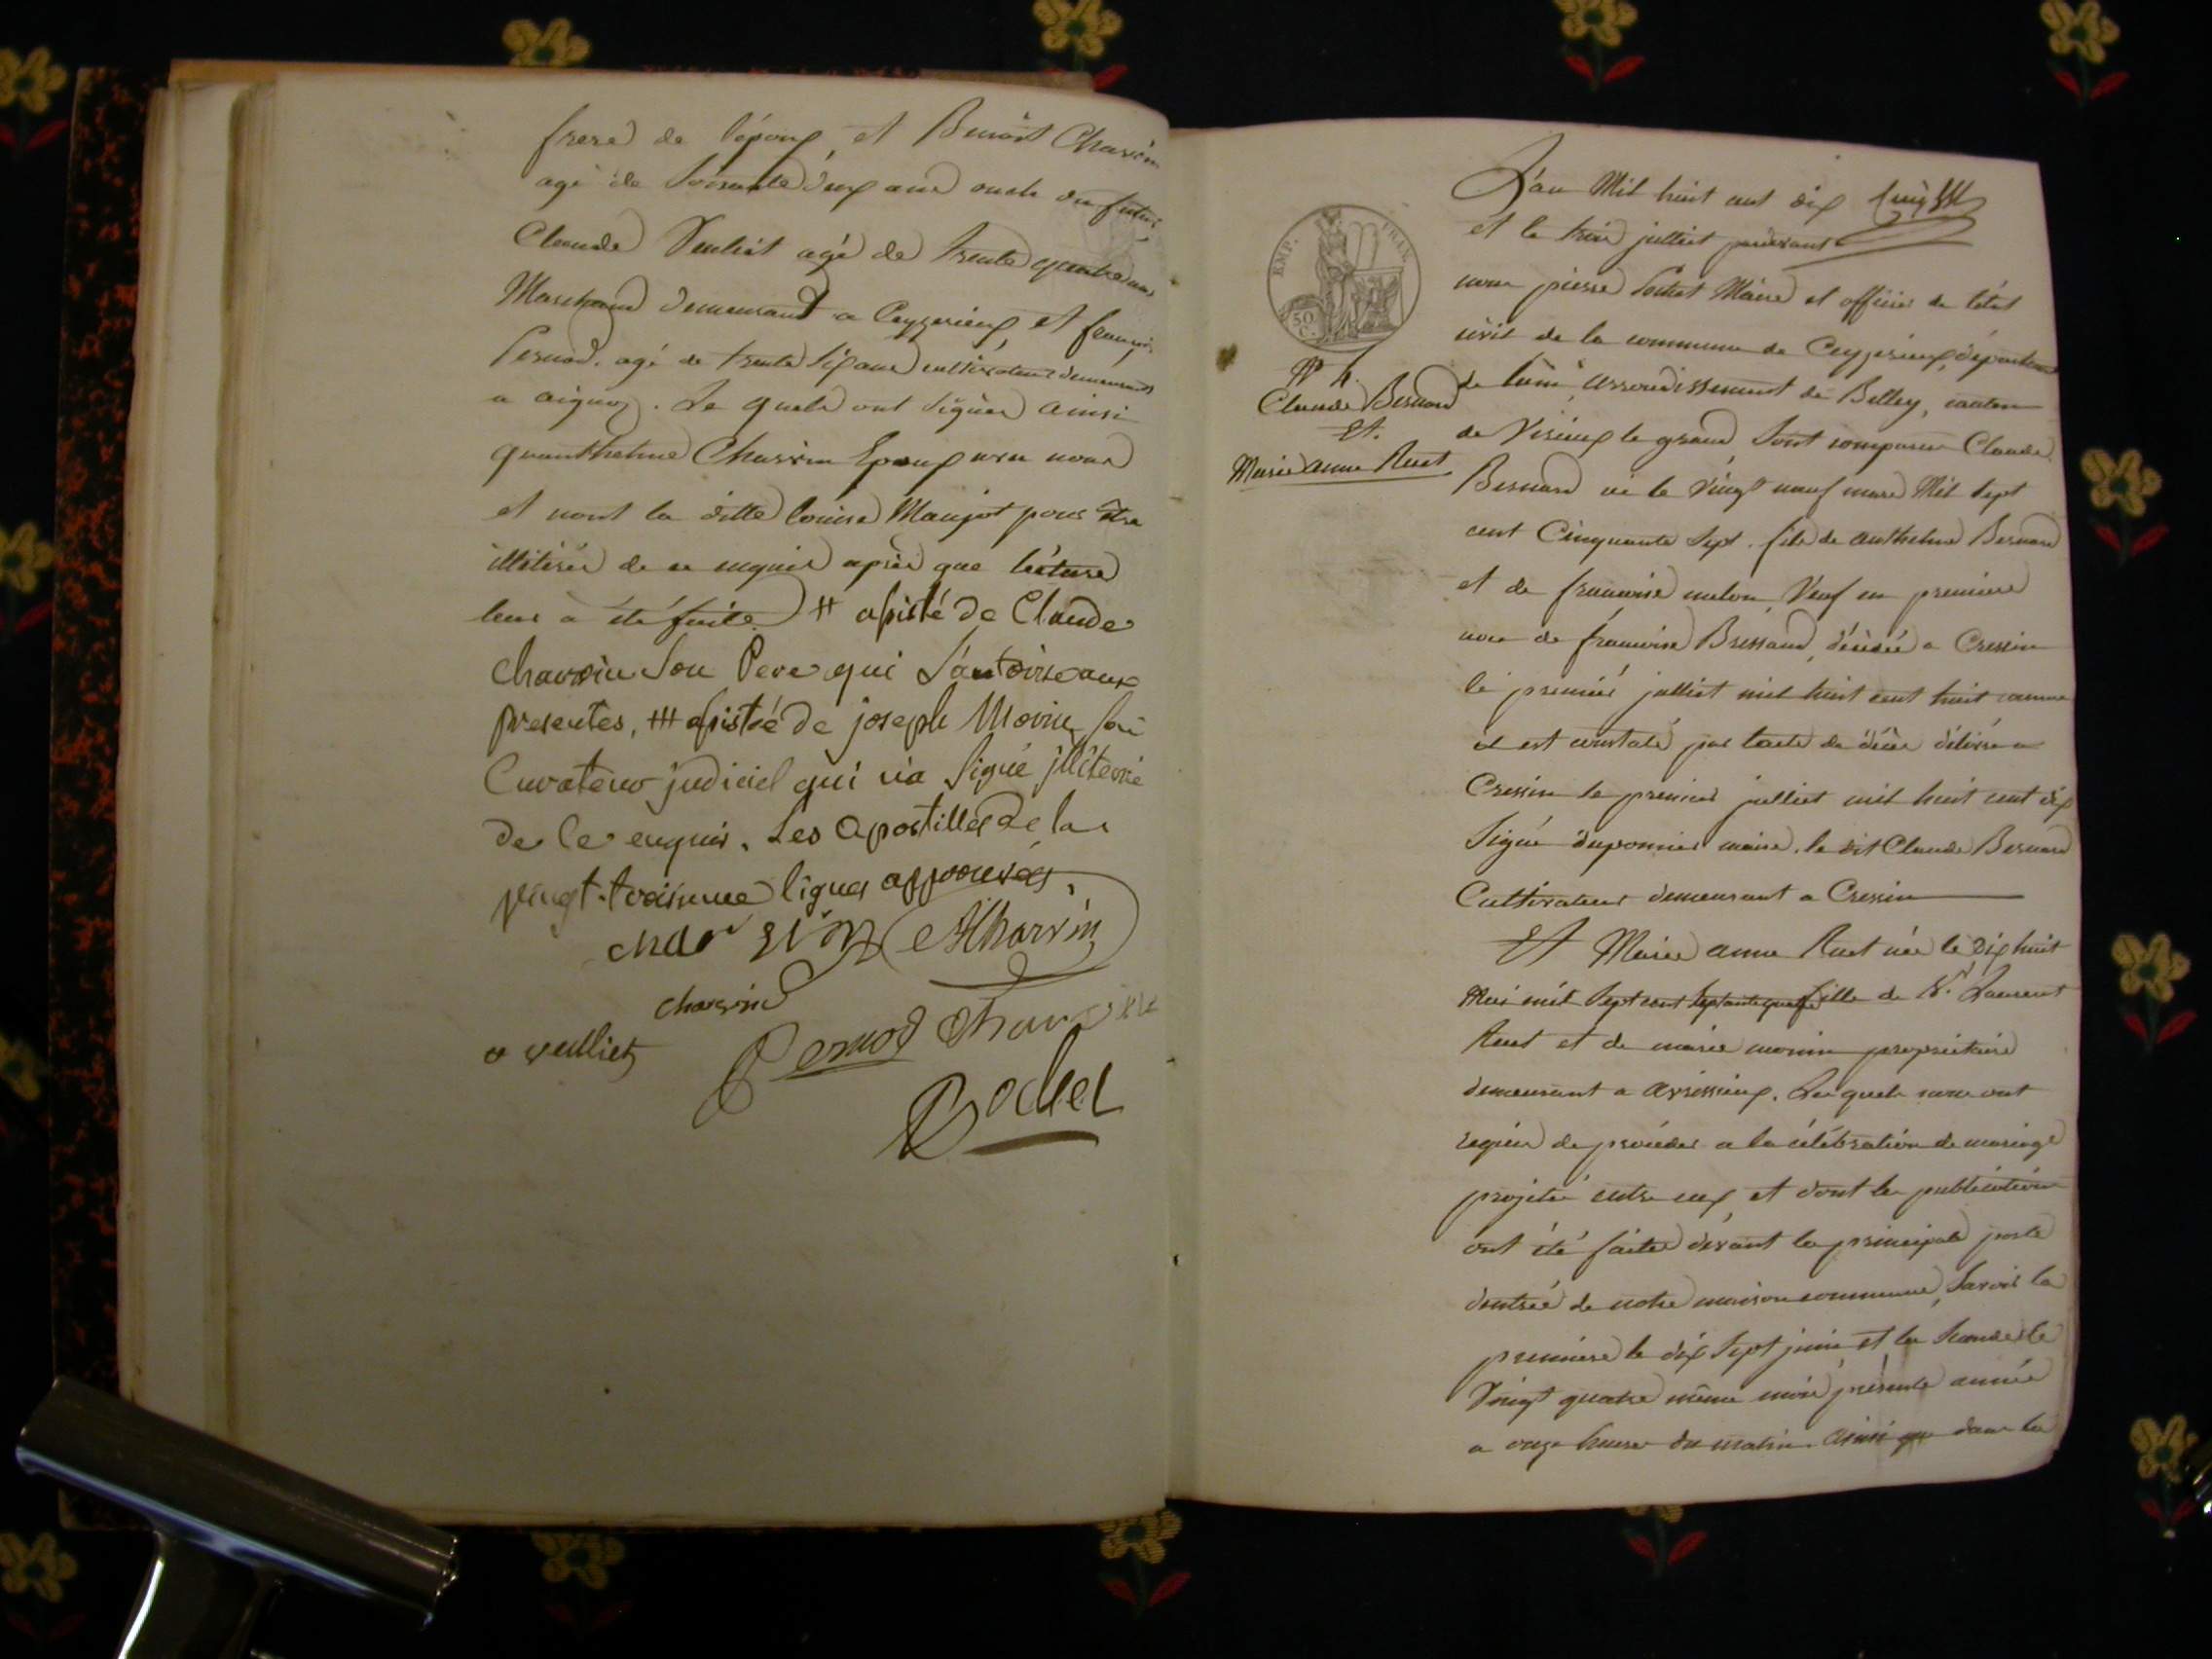 frere de l'époux, et Benoit Charvin
agé de Soixante deux ans oncle du futur
Claude Veuliet agé de trente quatre ans
Marchand demeurant a Ceyzerieux et françois
Pernod. agé de trente Six ans cultivateur demeurants
a aignoz. Le quels ont Signés ainsi
quanthelme Charvin Epoux avec nous
et nont la ditte Louise Maujot pour être
illitérés de ce requis après que lecture
leur a été faite # assisté de Claude
Charvin Son Pere qui S'autorise aux
presentes, ## assistée de joseph Morin Son
Curateur judiciel qui n'a Signé jlliterré
de ce enquis. Les apostilles de la
vingt-troisieme lignes approuvées.
Charvin
charvin
a veulliet Pernod
Bochet
L'an Mil huit cent dix
et le trois julliet pardevant
nous pierre Maire et officier de létat
civil de la commune de Ceyzerieux, départem
de lain, arrondissement de Belley, canton
de Virieux le grand, Sont comparus Claude
EMP. FRAN.
50 C.
N° 4.
Claude Bernard
Et.
Marie anne Ruet
Bernard né le Vingt neuf mars Mil Sept
cent Cinquante Sept. fils de anthelme Bernard
et de francoise melon, Veuf en premiere
noce de francoise Brissaud, décédée a Cressin
le premier julliet mil huit cent huit comme
il est constaté par lacte de décès délivré a
Cressin le premier julliet mil huit cent dix
Signé duponnier maire. le dit Claude Bernard
Cultivateur demeurant a Cressin
Et Marie anne Ruet née le dix huit
Mai mil Sept cent Septante quatre fille de Laurent
Ruet et de marie morin propriétaire
demeurant a avrissieux. Les quels nous ont
requis de procéder a la célébration de mariage
projeté entre eux, et dont les publications
ont été faites dévant la principale porte
dentrée de notre maison commune, Savoir la
premiere le dix Sept juin et la Seconde le
Vingt quatre même mois présente année
a onze heures du matin. ainsi que dans la